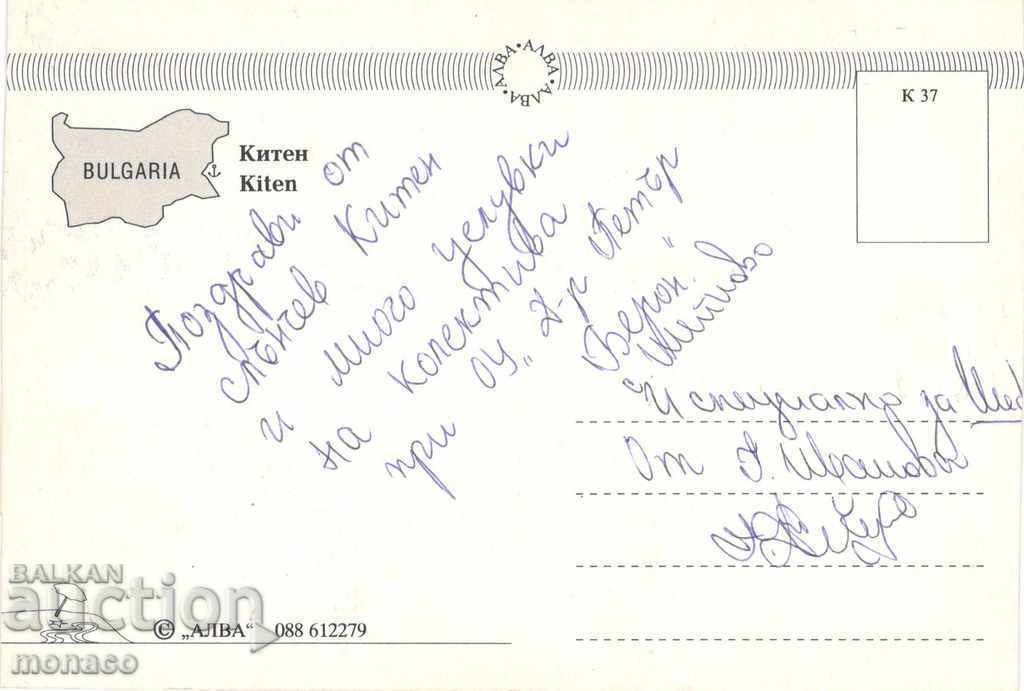 АЛВА • АЛВА • АЛВА • АЛВА •
К 37
BULGARIA
Китен
Kiten
Поздрави от
слънчев Китен
и много целувки
на колектива
при ОУ „Д-р Петър
Берон"
И специално за
От Г. Иванова
© „АЛВА" 088 612279
BALKAN
auction
monaco